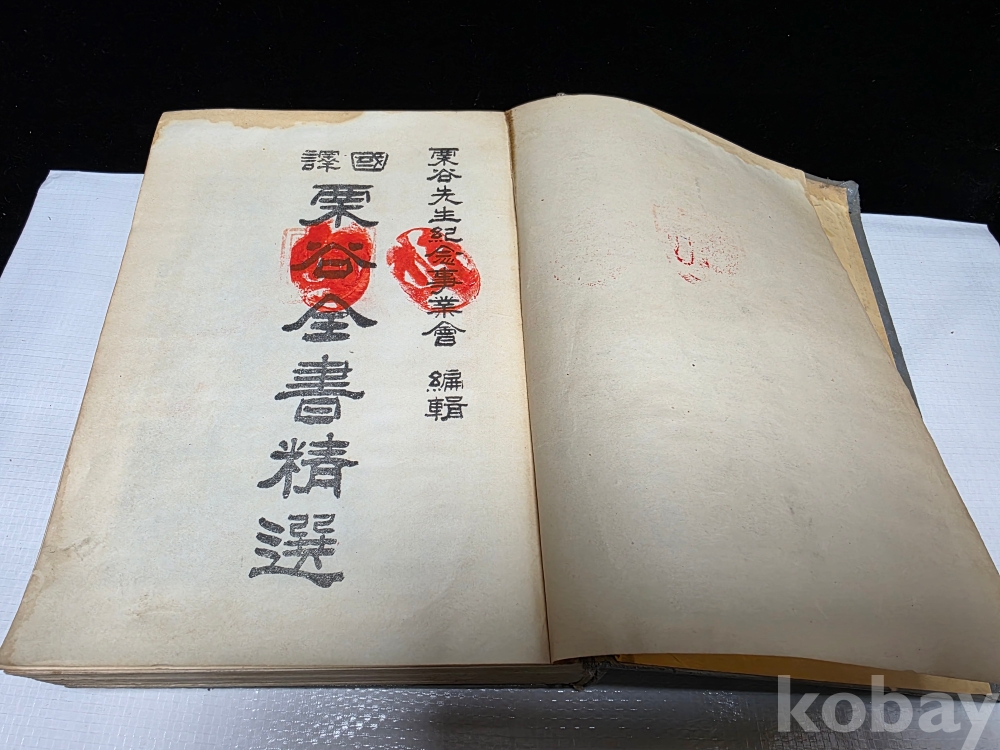 栗谷先生紀念事業會 編輯
國譯
栗谷全書精選
kobay